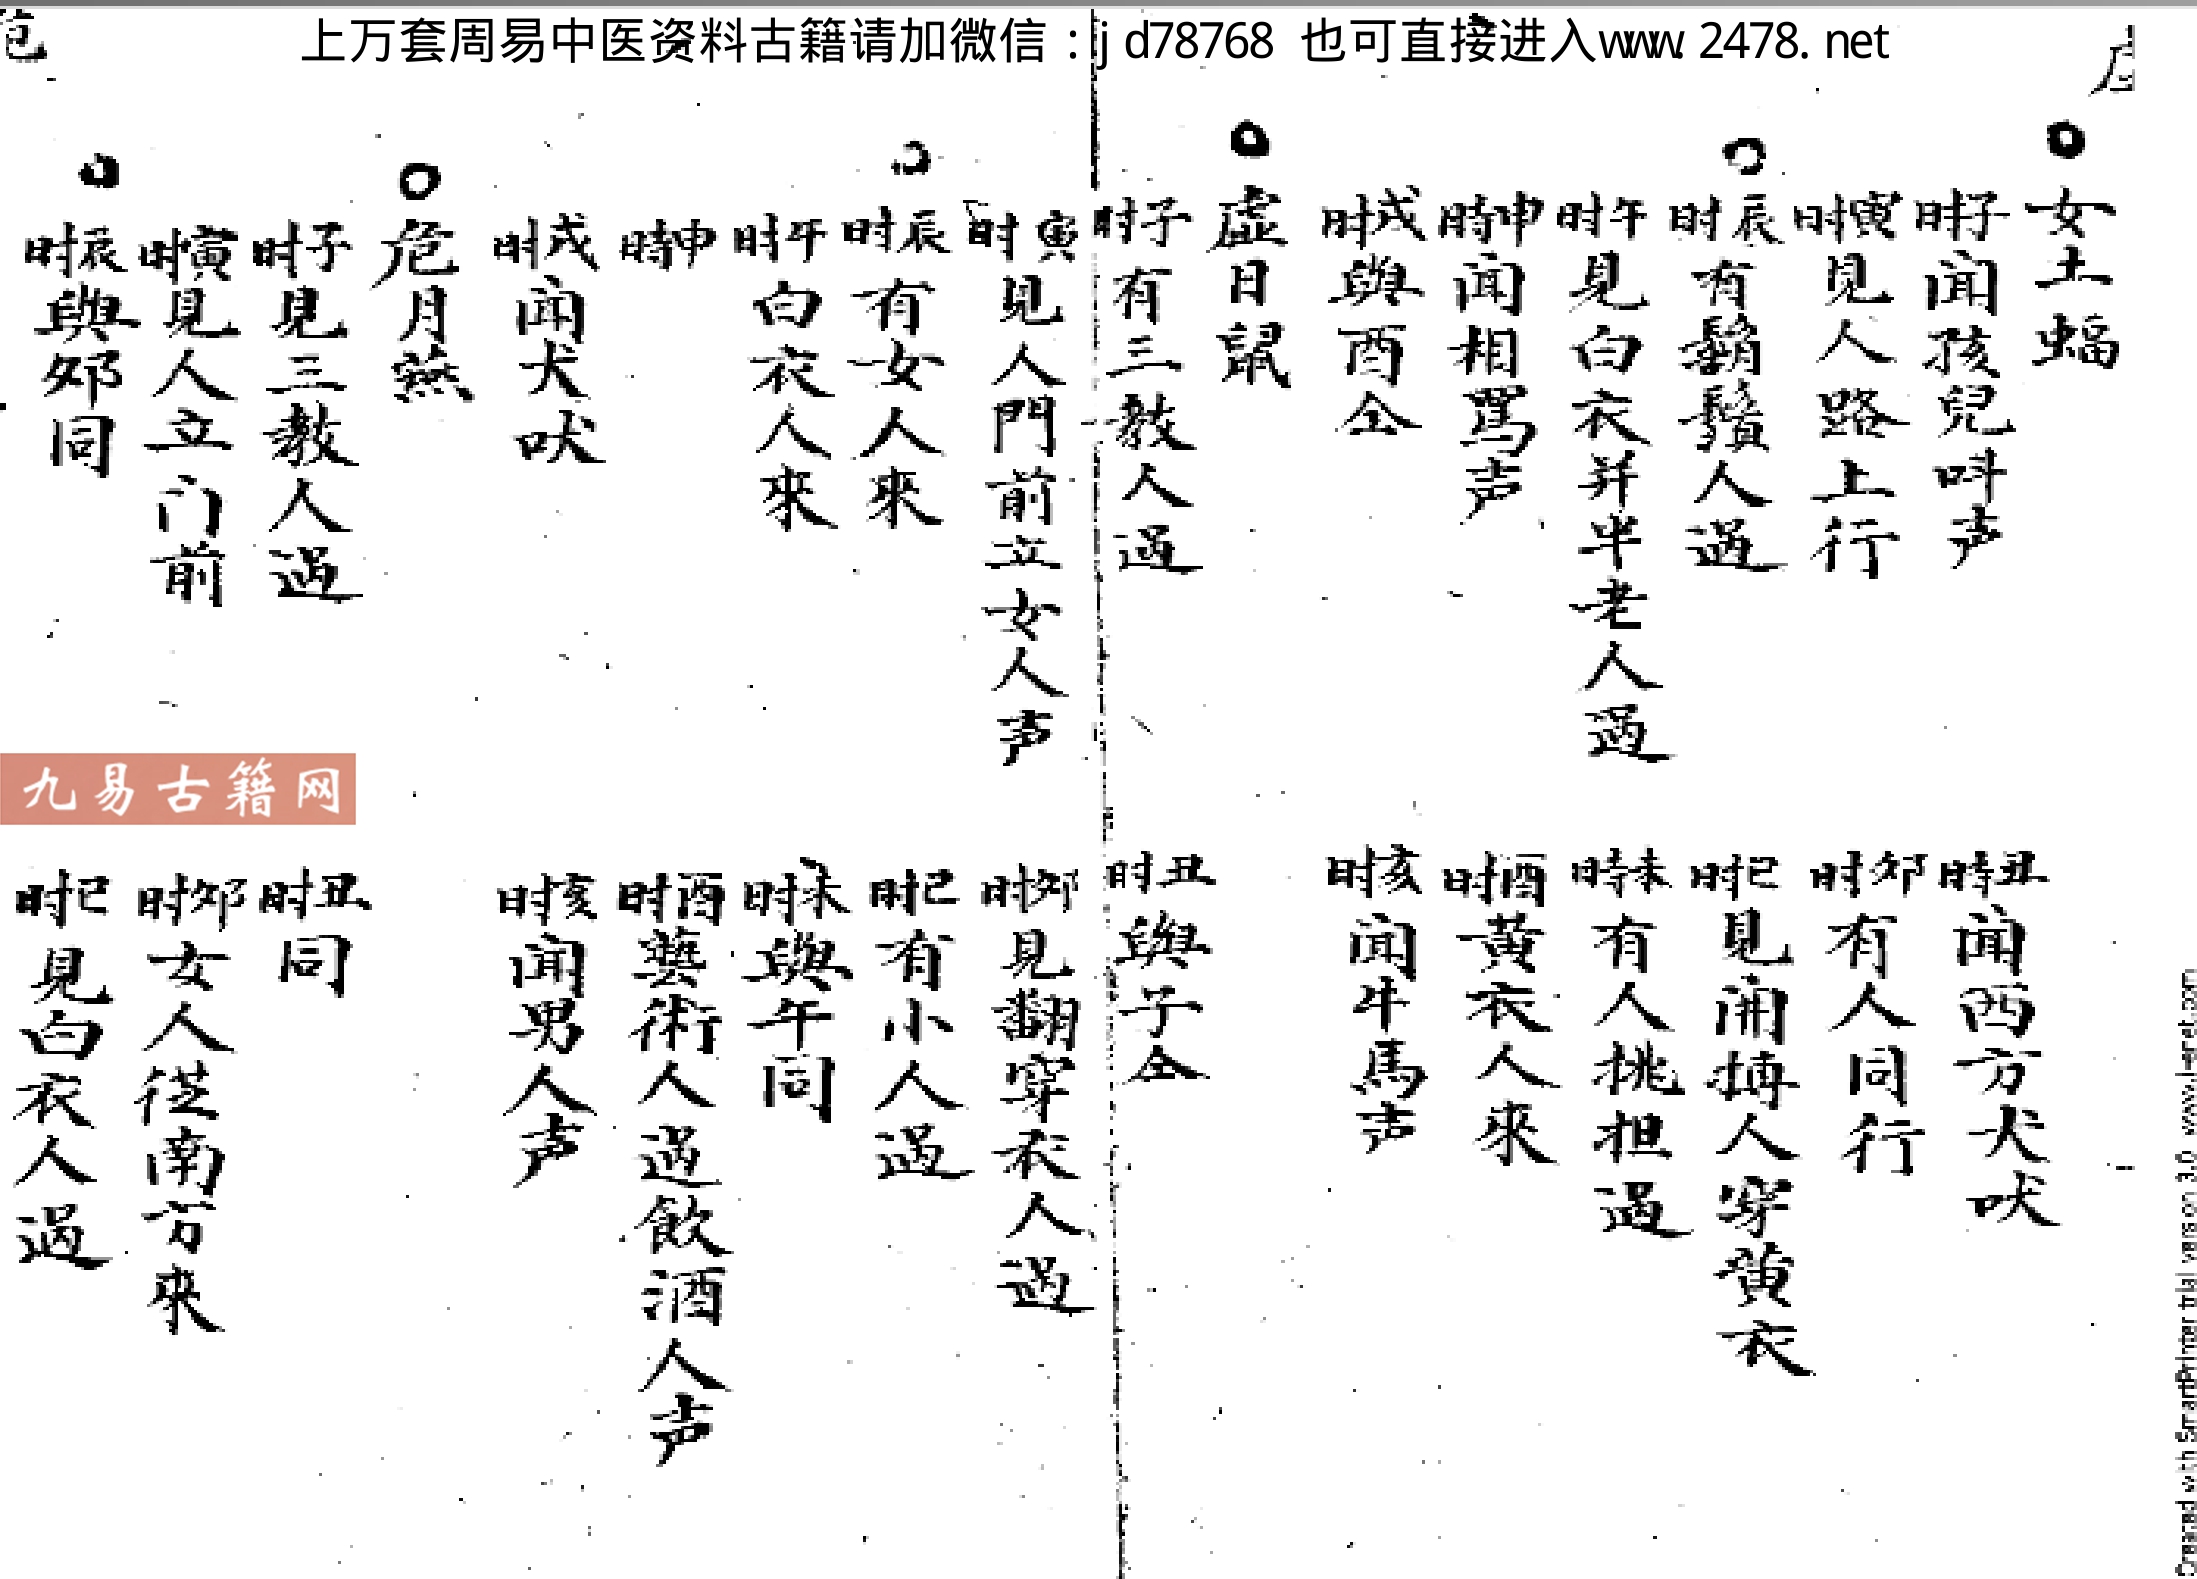 上万套周易中医资料古籍请加微信：jd78768 也可直接进入www.2478.net
女土蝠
子时闻孩兒呌声
丑時闻西方犬吠
寅时見人路上行
夘时有人同行
辰时有鬍鬚人過
巳时見開搏人穿黄衣
午时見白衣并半老人過
未時有人挑担過
申時闻相罵声
酉时黄衣人來
戌时與酉仝
亥时闻牛馬声
虛日鼠
子时有三教人過
丑时與子仝
寅时見人門前立女人声
夘时見翻穿衣人過
辰时有女人來
巳时有小人過
午时白衣人來
未时與午同
申時
酉时藝術人過飲酒人声
戌时闻犬吠
亥时闻男人声
危月燕
子时見三教人過
丑时同
寅时見人立门前
夘时女人從南方來
辰时與夘同
巳时見白衣人過
危
九易古籍网
Created with SmartPrinter trial version 3.0 www.i-enet.com